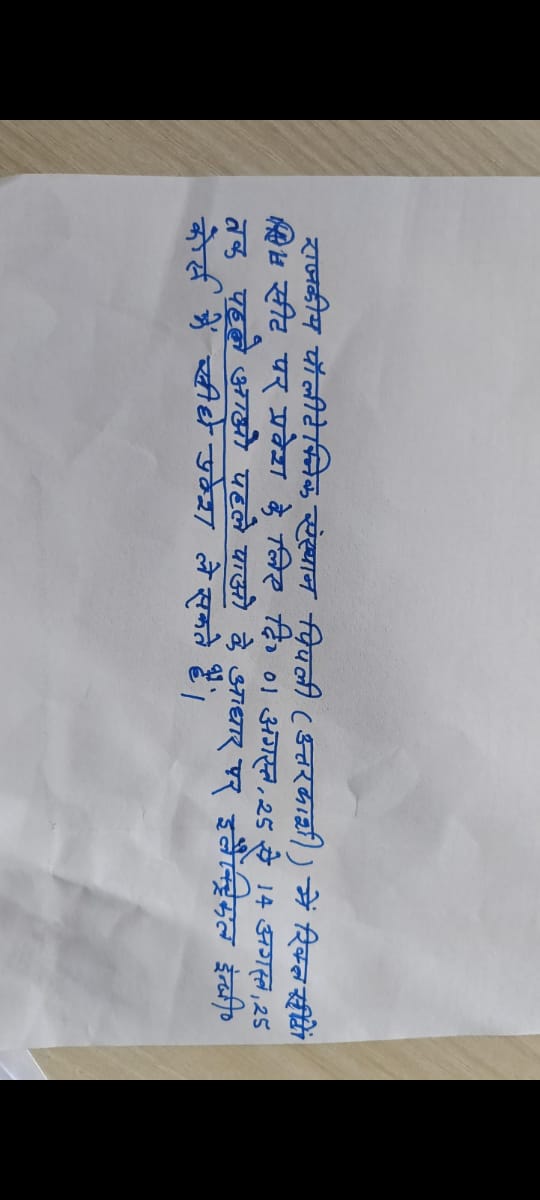 राजकीय पॉलीटेक्निक संस्थान पिपली (उत्तरकाशी) में रिक्त
सीट पर प्रवेश के लिए दि० 01 अगस्त, 25 से 14 अगस्त, 25
तक पहले आओ पहले पाओ के आधार पर इलैक्ट्रिकल इंजी०
कोर्स में सीधे प्रवेश ले सकते हैं।